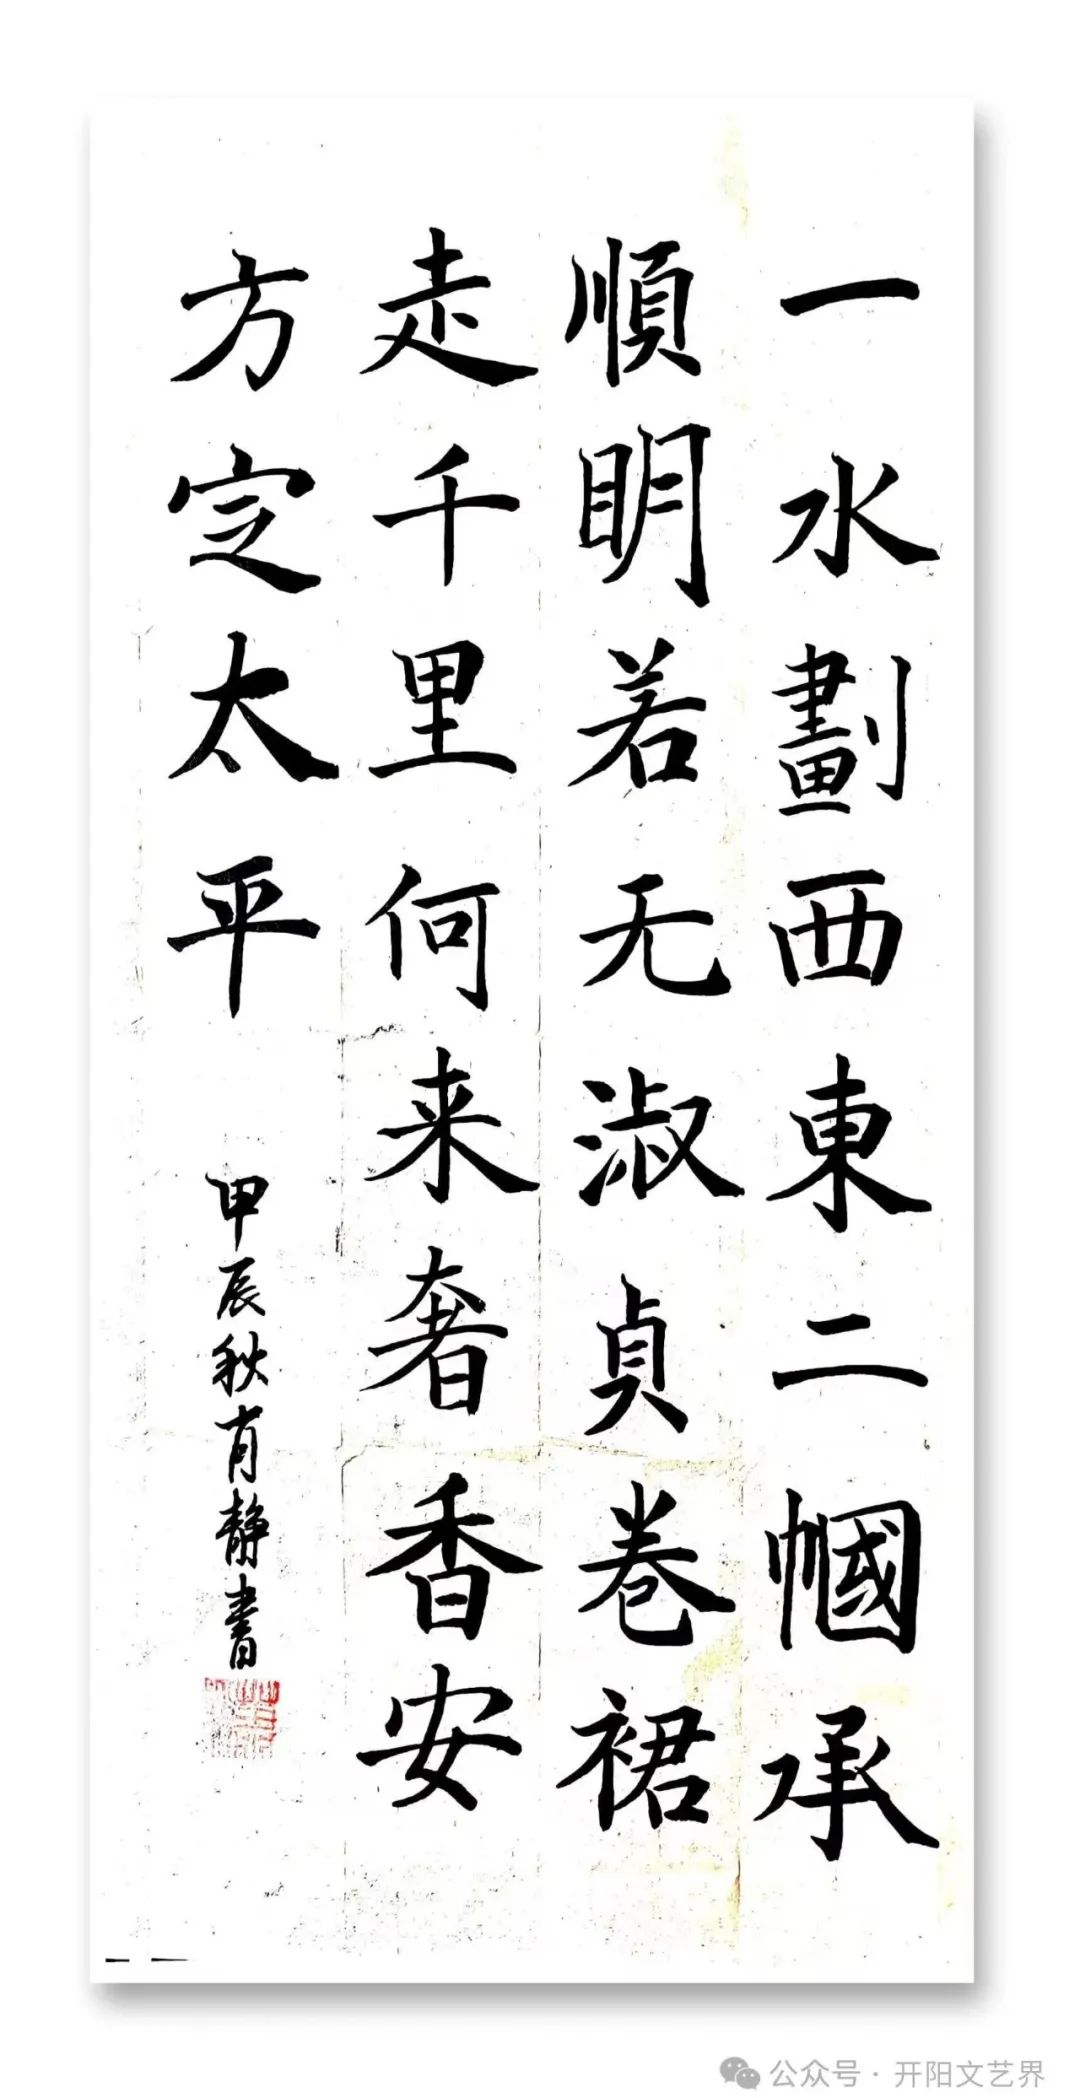 一水劃西東二幗承
順明若无淑貞卷裙
走千里何来奢香安
方定太平
甲辰秋肖静書
公众号·开阳文艺界